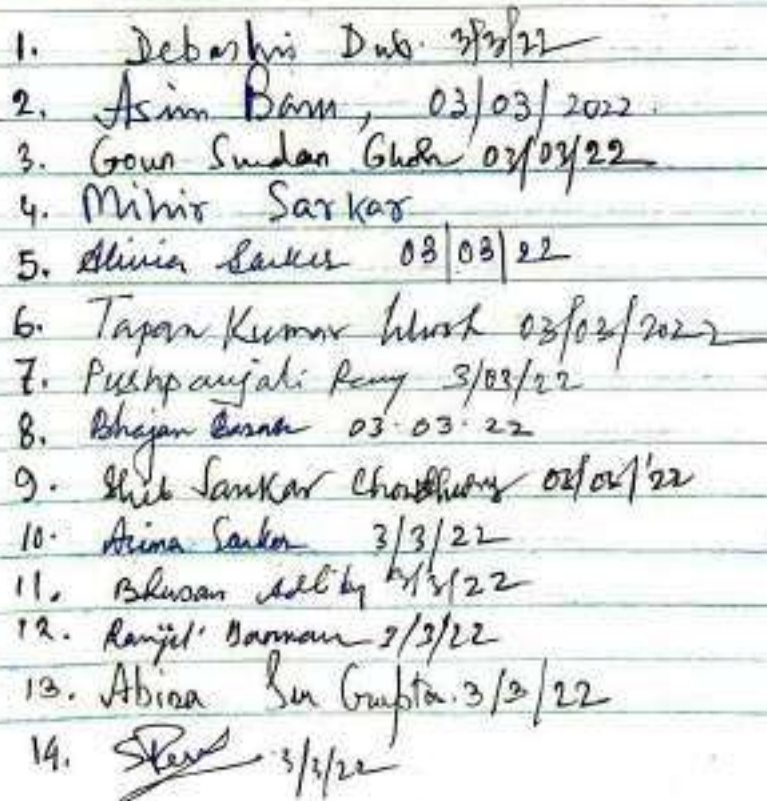 1. Debashis Dub. 3/3/22
2. Asim Baru, 03/03/2022.
3. Goun Sundan Ghosh 03/03/22
4. Mihir Sarkar
5. Sarker 03/03/22
6. Tapan Kumar Ghosh 03/03/2022
7. Pushpanjali Roy 3/03/22
8. Bhajan Basak 03.03.22
9. Shib Sankar Chowdhury 03/03/'22
10. Sarkar 3/3/22
11. Bhusan 3/3/22
12. Ranjit Barman 3/3/22
13. Abira Sen Gupta. 3/3/22
14. 3/3/22